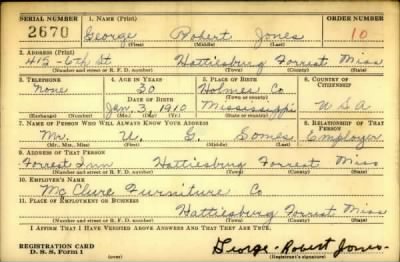 SERIAL NUMBER 1. NAME (Print) ORDER NUMBER
2670 George Robert Jones 10
(First) (Middle) (Last)
2. ADDRESS (Print)
415-6th St Hattiesburg Forrest Miss
(Number and street or R. F. D. number) (Town) (County) (State)
3. TELEPHONE 4. AGE IN YEARS 5. PLACE OF BIRTH 6. COUNTRY OF CITIZENSHIP
None 30 Holmes Co
DATE OF BIRTH (Town or county)
Jan 3, 1910 Mississippi U S A
(Exchange) (Number) (Mo.) (Day) (Yr.) (State or country)
7. NAME OF PERSON WHO WILL ALWAYS KNOW YOUR ADDRESS 8. RELATIONSHIP OF THAT PERSON
Mr. G. Employer
(Mr., Mrs., Miss) (First) (Middle) (Last)
9. ADDRESS OF THAT PERSON
Forrest Inn Hattiesburg Forrest Miss
(Number and street or R. F. D. number) (Town) (County) (State)
10. EMPLOYER'S NAME
McClure Furniture Co
11. PLACE OF EMPLOYMENT OR BUSINESS
Hattiesburg Forrest Miss
(Number and street or R. F. D. number) (Town) (County) (State)
I AFFIRM THAT I HAVE VERIFIED ABOVE ANSWERS AND THAT THEY ARE TRUE.
REGISTRATION CARD
D. S. S. Form 1 (over) George Robert Jones
(Registrant's signature)